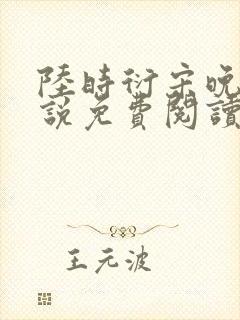 陸時衍宋晚
說免費閱讀
王元波